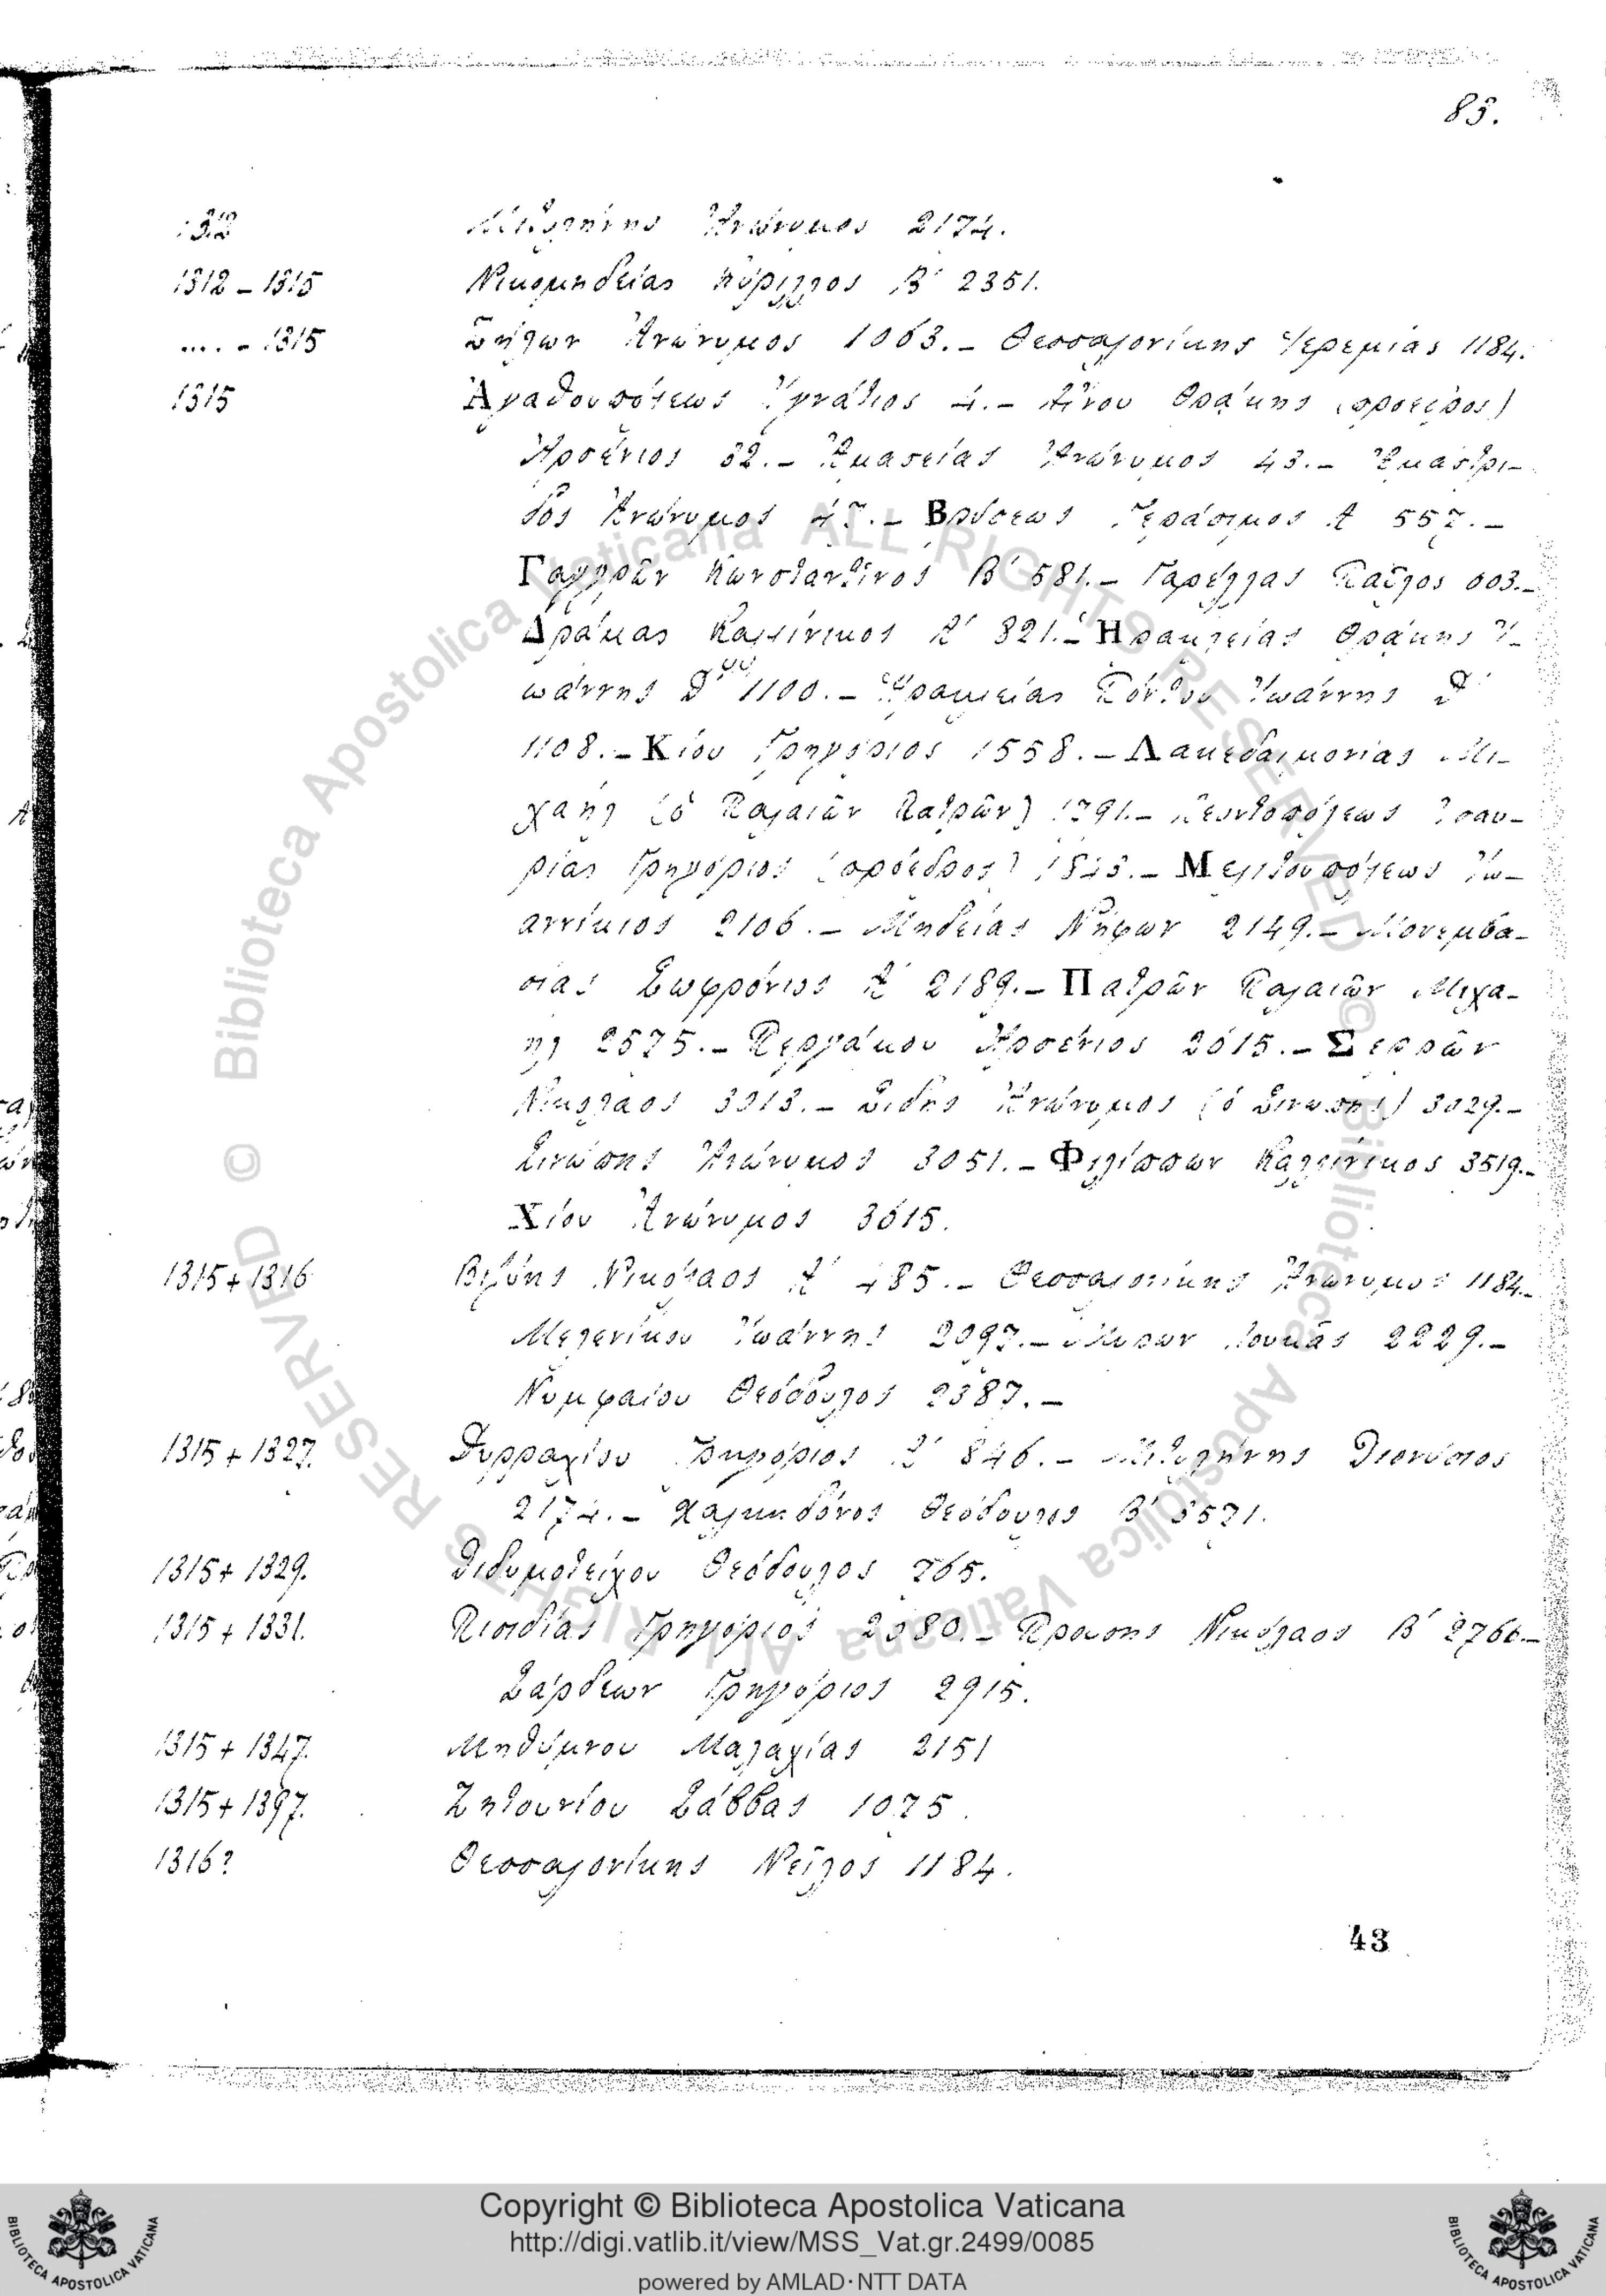 83.
1312 Μιτυλήνης Ἀνώνυμος 2174.
1312 - 1315 Νικομηδείας Κύριλλος Β' 2351.
.... - 1315 Ἀνώνυμος 1063. - Θεσσαλονίκης Ἱερεμίας 1184.
1315 Ἀγαθουπόλεως Ἰγνάτιος 4. - Αἴνου Θράκης (πρόεδρος)
Ἀρσένιος 32. - Ἀμασείας Ἀνώνυμος 43. - Ἀμάστρι-
δος Ἀνώνυμος 47. - Βρύσεως Γεράσιμος Α 557. -
Γαγγρῶν Κωνσταντῖνος Β' 581. - Γαρέλλας Παῦλος 603. -
Δράμας Καλλίνικος Α' 821. - Ἡρακλείας Θράκης Ἰ-
ωάννης Δ' 1100. - Ἡρακλείας Πόντου Ἰωάννης Δ'
1108. - Κίου Γρηγόριος 1558. - Λακεδαιμονίας Μι-
χαὴλ (ὁ Παλαιῶν Πατρῶν) 1791. - Λεοντοπόλεως Ἰσαυ-
ρίας Γρηγόριος (πρόεδρος) - Μελιτουπόλεως Ἰω-
αννίκιος 2106. - Μηδείας Νήφων 2149. - Μονεμβα-
σίας Σωφρόνιος Α' 2189. - Πατρῶν Παλαιῶν Μιχα-
ηλ 2575. - Περγάμου Ἀρσένιος 2615. - Σερρῶν
Νικόλαος 3013. - Σίδης Ἀνώνυμος (ὁ Σινώπης) 3029. -
Σινώπης Ἀνώνυμος 3051. - Φιλίππων Καλλίνικος 3519. -
Χίου Ἀνώνυμος 3615.
1315 + 1316 Βιζύης Νικόλαος Α' 485. - Θεσσαλονίκης Ἀνώνυμος 1184. -
Μελενίκου Ἰωάννης 2097. - Μύρων Λουκᾶς 2229. -
Νυμφαίου Θεόδουλος 2387. -
1315 + 1327. Δυρραχίου Γρηγόριος Α' 846. - Μιτυλήνης Διονύσιος
2174. - Χαλκηδόνος Θεόδουλος Β' 3571.
1315 + 1329. Διδυμοτείχου Θεόδουλος 765.
1315 + 1331. Πισιδίας Γρηγόριος 2680. - Προύσης Νικόλαος Β' 2766. -
Σάρδεων Γρηγόριος 2915.
1315 + 1347. Μηθύμνου Μαλαχίας 2151
1315 + 1397. Ζητουνίου Σάββας 1075.
1316? Θεσσαλονίκης Νεῖλος 1184.
43
© Biblioteca Apostolica Vaticana ALL RIGHTS RESERVED © Biblioteca Apostolica Vaticana ALL RIGHTS RESERVED
Copyright © Biblioteca Apostolica Vaticana
http://digi.vatlib.it/view/MSS_Vat.gr.2499/0085
powered by AMLAD·NTT DATA
BIBLIOTECA APOSTOLICA VATICANA
BIBLIOTECA APOSTOLICA VATICANA